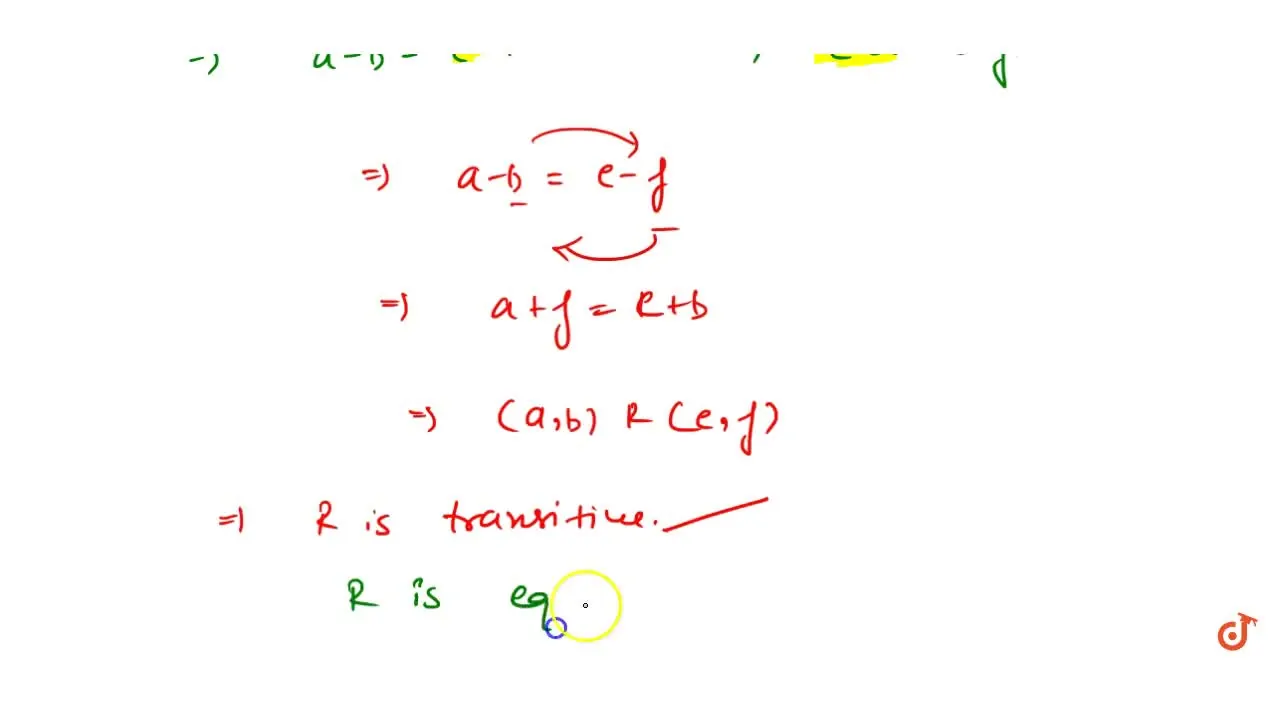 => a-b =
=> a-b = e-f
=> a+f = e+b
=> (a,b) R (e,f)
=> R is transitive.
R is eq